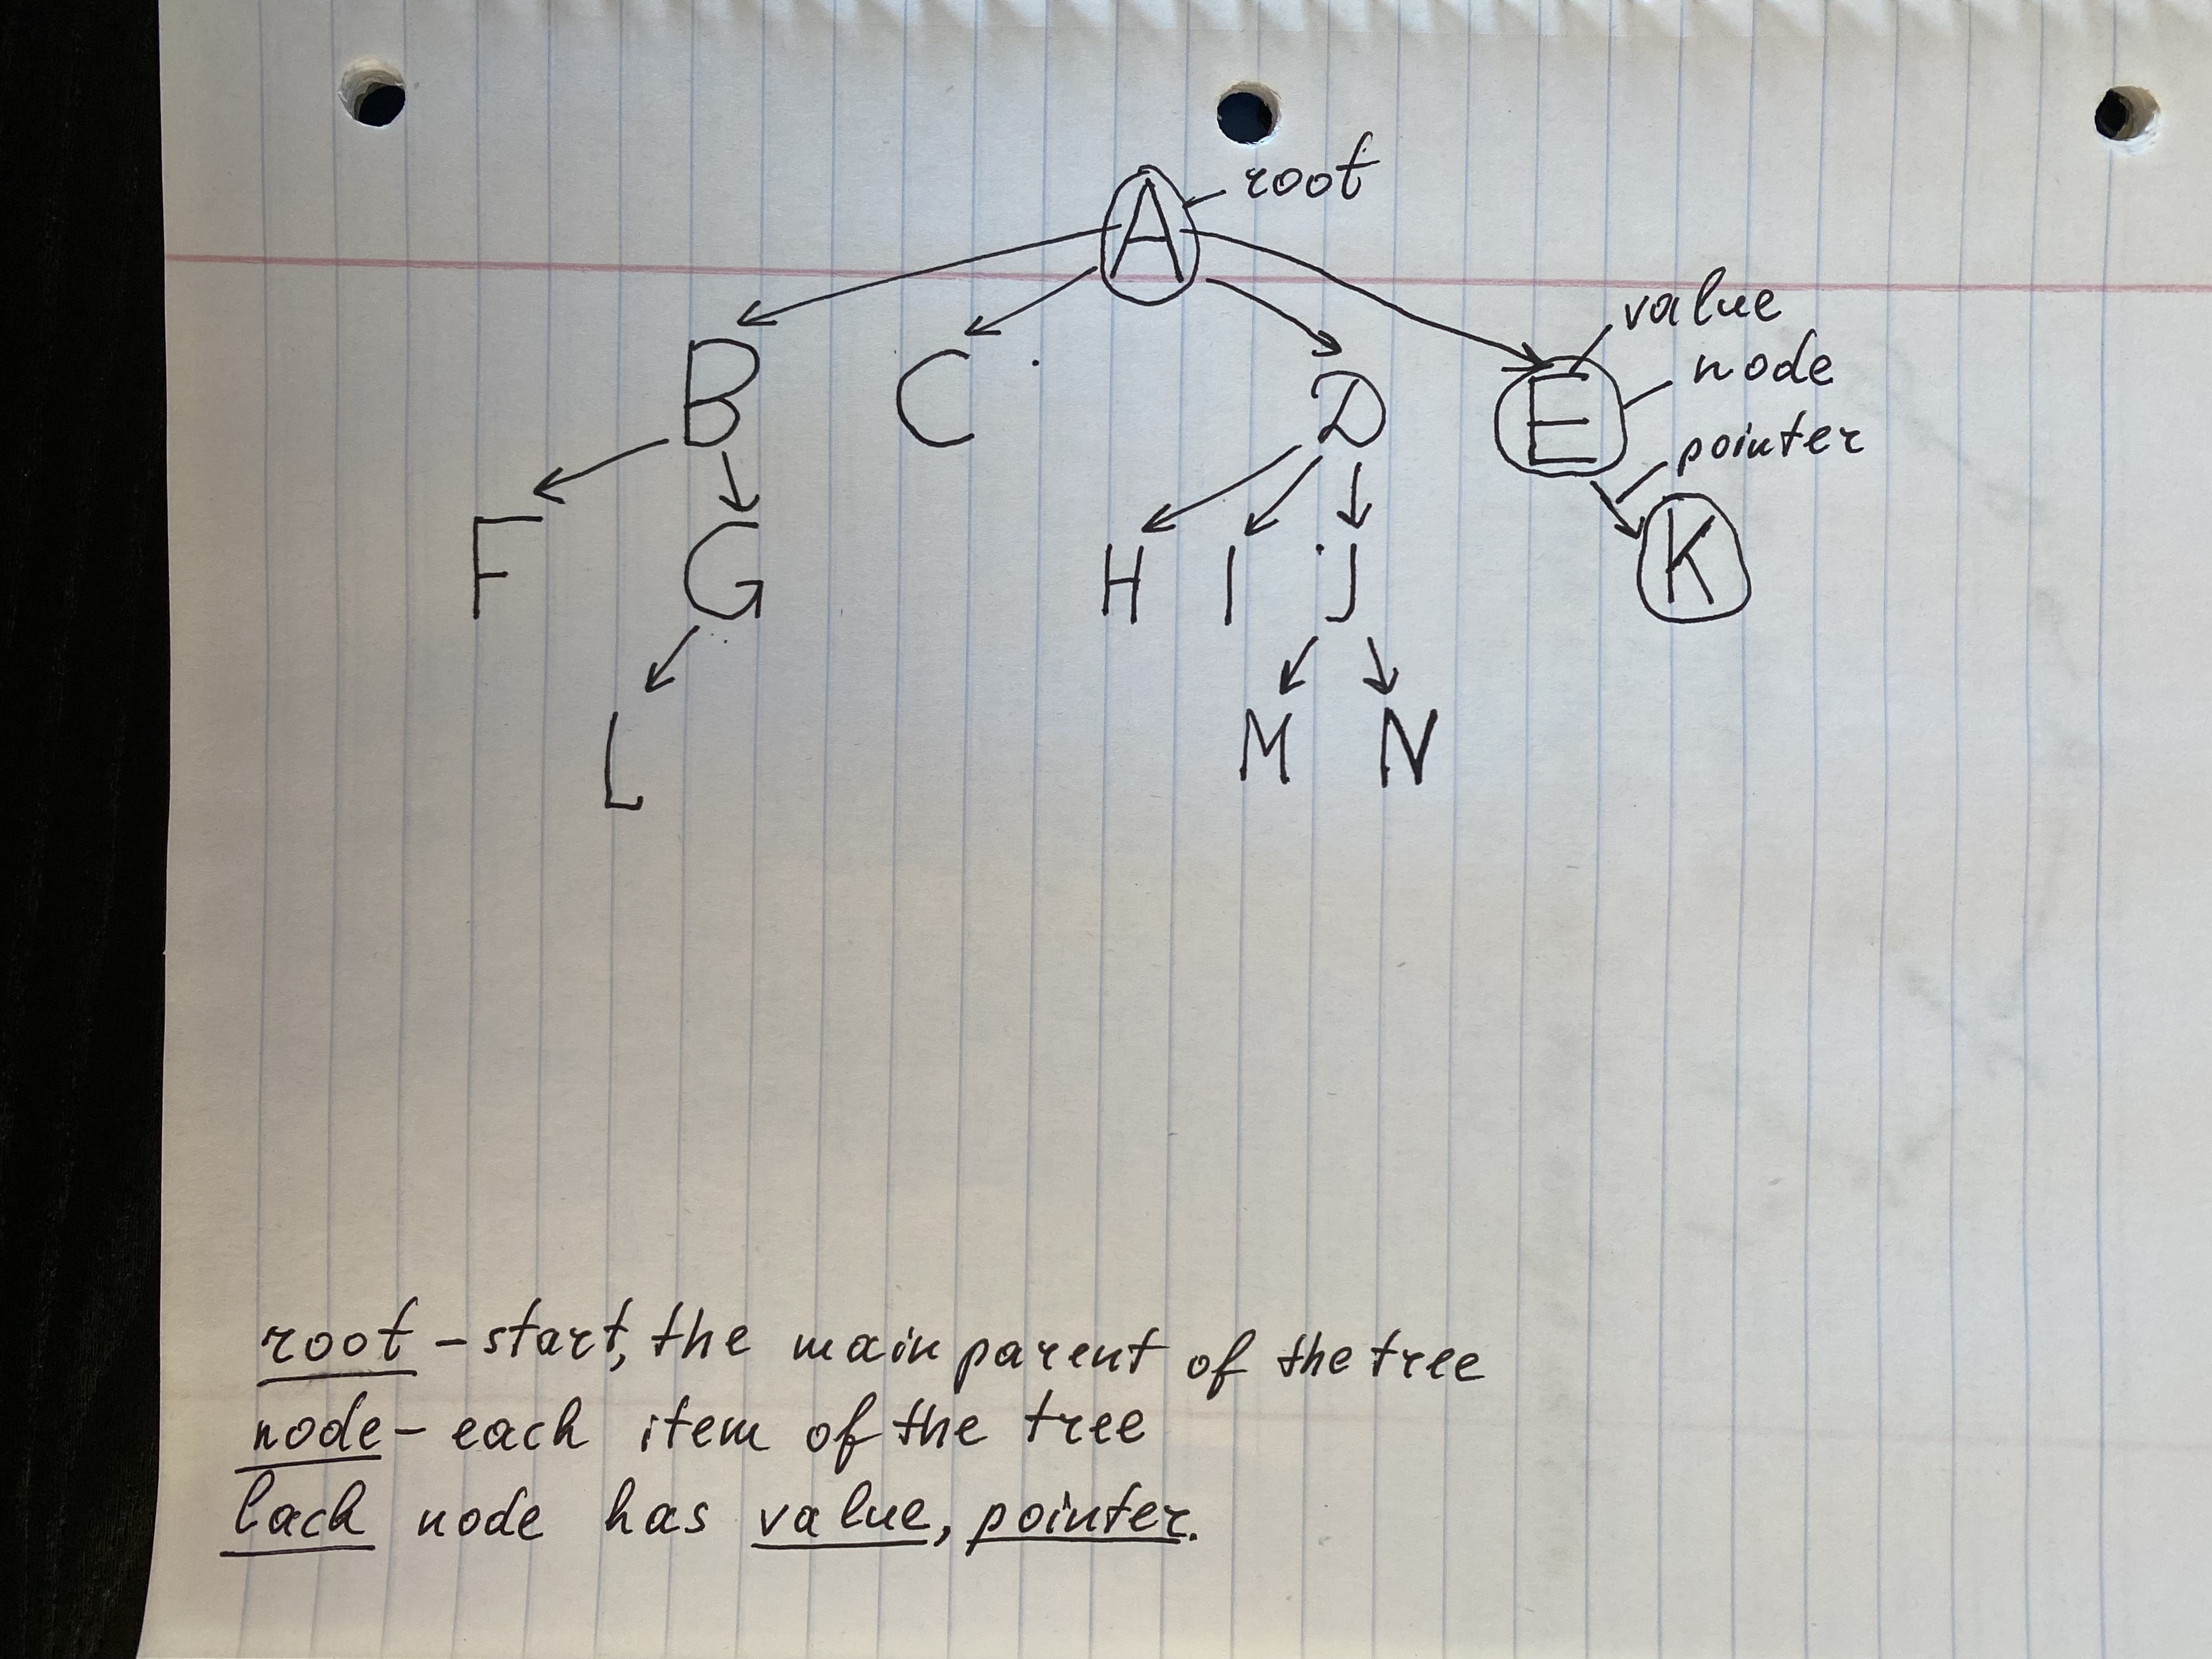 A root
value
B C D E node
pointer
F G H I J K
L M N
root - start, the main parent of the tree
node - each item of the tree
Each node has value, pointer.